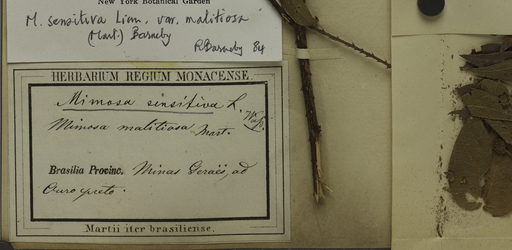 New York Botanical Garden
M. sensitiva Linn. var. malitiosa
(Mart.) Barneby
RBarneby 84
HERBARIUM REGIUM MONACENSE.
Mimosa sensitiva L.
Mimosa malitiosa Mart.
Brasilia Provinc. Minas Geraës, ad
Ouro preto.
Martii iter brasiliense.